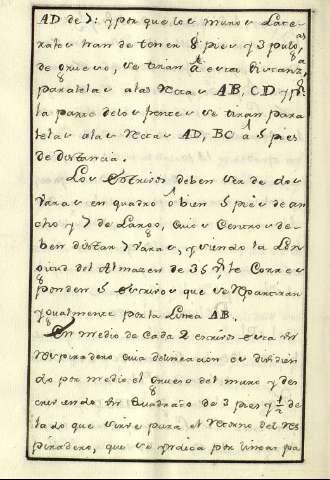 AD de 7: y por que los muros Late
rales han de tener 8 pies y 3 pulgᵃˢ
de grueso, se tiran â esta distanzᵃ
paralelas a las rectas AB, CD y pʳ
la parte de los frentes se tiran para
lelas a las rectas AD, BC â 5 pies
de distancia.
Los Estrivos deben ser de dos
Varas en quadro ô bien 5 pies de an
cho y 7 de Largo, cuios Centros de
ben distar 7 varas, y siendo la Lon
gitud del Almazen de 35 vˢ le Corres
ponden 5 estrivos que se repartiran
ygualmente por la Linea AB.
En medio de cada 2 estrivos esta un
respiradero cuia delineacion es dividien
do por medio el grueso del muro y des
criviendo un Quadrado de 3 pies y 1/2 de
lado que sirve para el retorno del res
piradero, que se yndica por lineas pa